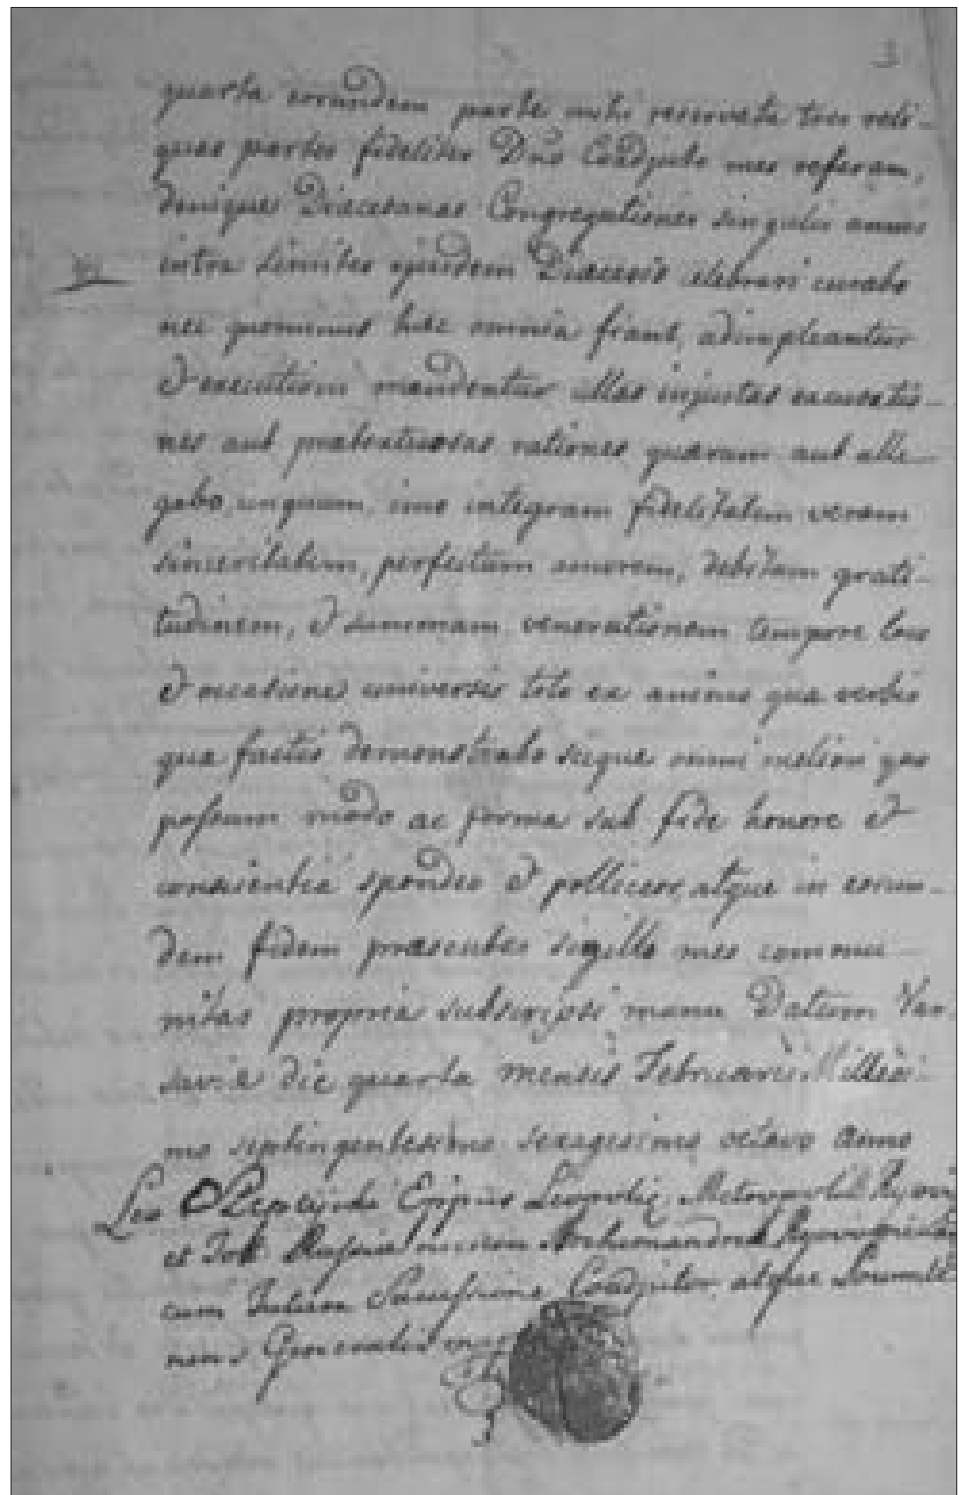 3
quarta eorundem parte mihi reservata tres reli-
quas partes fideliter Dno Coadjuto meo referam,
denique Diæcesanas Congregationes singulis annis
intra limites ejusdem Diæcesis celebrari curabo
nec quominus hæc omnia fiant, adimpleantur
et executioni mandentur ullas injustas excusatio-
nes aut prætextuosas rationes quæram aut alle-
gabo unquam, imo integram fidelitatem veram
sinceritatem, perfectum amorem, debitam grati-
tudinem, et summam venerationem tempore loco
et occasione universis toto ex animo qua verbis
qua factis demonstrabo sicque omni meliori quo
possum modo ac forma sub fide honore et
conscientia spondeo et polliceor, atque in eorun-
dem fidem præsentes sigillo meo commu-
nitas propria subscripsi manu Datum Var-
saviæ die quarta mensis Februarii Millesi-
mo septingentesimo sexagesimo octavo anno
Leo Szeptycki Eppus Leopolie Metropolie Kijovie
et Totius Russiæ Archimandrita
cum Futura Successione Coadjutor atque
Generalis